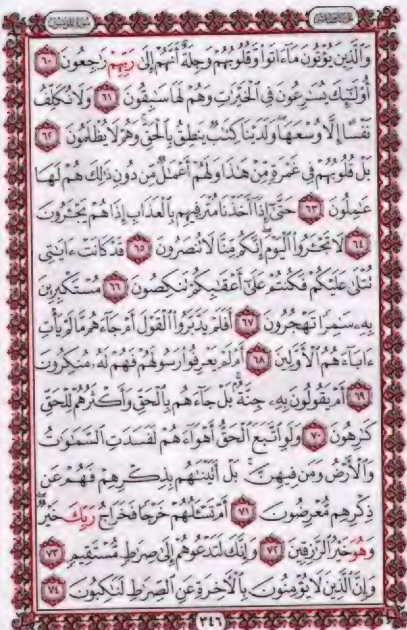 وَالَّذِينَ يُؤْتُونَ مَا ءَاتَوا وَّقُلُوبُهُمْ وَجِلَةٌ أَنَّهُمْ إِلَىٰ رَبِّهِمْ رَٰجِعُونَ ٦٠
أُوْلَٰٓئِكَ يُسَٰرِعُونَ فِي ٱلْخَيْرَٰتِ وَهُمْ لَهَا سَٰبِقُونَ ٦١ وَلَا نُكَلِّفُ
نَفْسًا إِلَّا وُسْعَهَا وَلَدَيْنَا كِتَٰبٌ يَنطِقُ بِٱلْحَقِّ وَهُمْ لَا يُظْلَمُونَ ٦٢
بَلْ قُلُوبُهُمْ فِي غَمْرَةٍ مِّنْ هَٰذَا وَلَهُمْ أَعْمَٰلٌ مِّن دُونِ ذَٰلِكَ هُمْ لَهَا
عَٰمِلُونَ ٦٣ حَتَّىٰٓ إِذَآ أَخَذْنَا مُتْرَفِيهِم بِٱلْعَذَابِ إِذَا هُمْ يَجْـَٔرُونَ
٦٤ لَا تَجْـَٔرُوا۟ ٱلْيَوْمَ إِنَّكُم مِّنَّا لَا تُنصَرُونَ ٦٥ قَدْ كَانَتْ ءَايَٰتِي
تُتْلَىٰ عَلَيْكُمْ فَكُنتُمْ عَلَىٰٓ أَعْقَٰبِكُمْ تَنكِصُونَ ٦٦ مُسْتَكْبِرِينَ
بِهِۦ سَٰمِرًا تَهْجُرُونَ ٦٧ أَفَلَمْ يَدَّبَّرُوا۟ ٱلْقَوْلَ أَمْ جَآءَهُم مَّا لَمْ يَأْتِ
ءَابَآءَهُمُ ٱلْأَوَّلِينَ ٦٨ أَمْ لَمْ يَعْرِفُوا۟ رَسُولَهُمْ فَهُمْ لَهُۥ مُنكِرُونَ
٦٩ أَمْ يَقُولُونَ بِهِۦ جِنَّةٌۢ بَلْ جَآءَهُم بِٱلْحَقِّ وَأَكْثَرُهُمْ لِلْحَقِّ
كَٰرِهُونَ ٧٠ وَلَوِ ٱتَّبَعَ ٱلْحَقُّ أَهْوَآءَهُمْ لَفَسَدَتِ ٱلسَّمَٰوَٰتُ
وَٱلْأَرْضُ وَمَن فِيهِنَّ بَلْ أَتَيْنَٰهُم بِذِكْرِهِمْ فَهُمْ عَن
ذِكْرِهِم مُّعْرِضُونَ ٧١ أَمْ تَسْـَٔلُهُمْ خَرْجًا فَخَرَاجُ رَبِّكَ خَيْرٌ
وَهُوَ خَيْرُ ٱلرَّٰزِقِينَ ٧٢ وَإِنَّكَ لَتَدْعُوهُمْ إِلَىٰ صِرَٰطٍ مُّسْتَقِيمٍ ٧٣
وَإِنَّ ٱلَّذِينَ لَا يُؤْمِنُونَ بِٱلْأَخِرَةِ عَنِ ٱلصِّرَٰطِ لَنَٰكِبُونَ ٧٤
٣٤٦